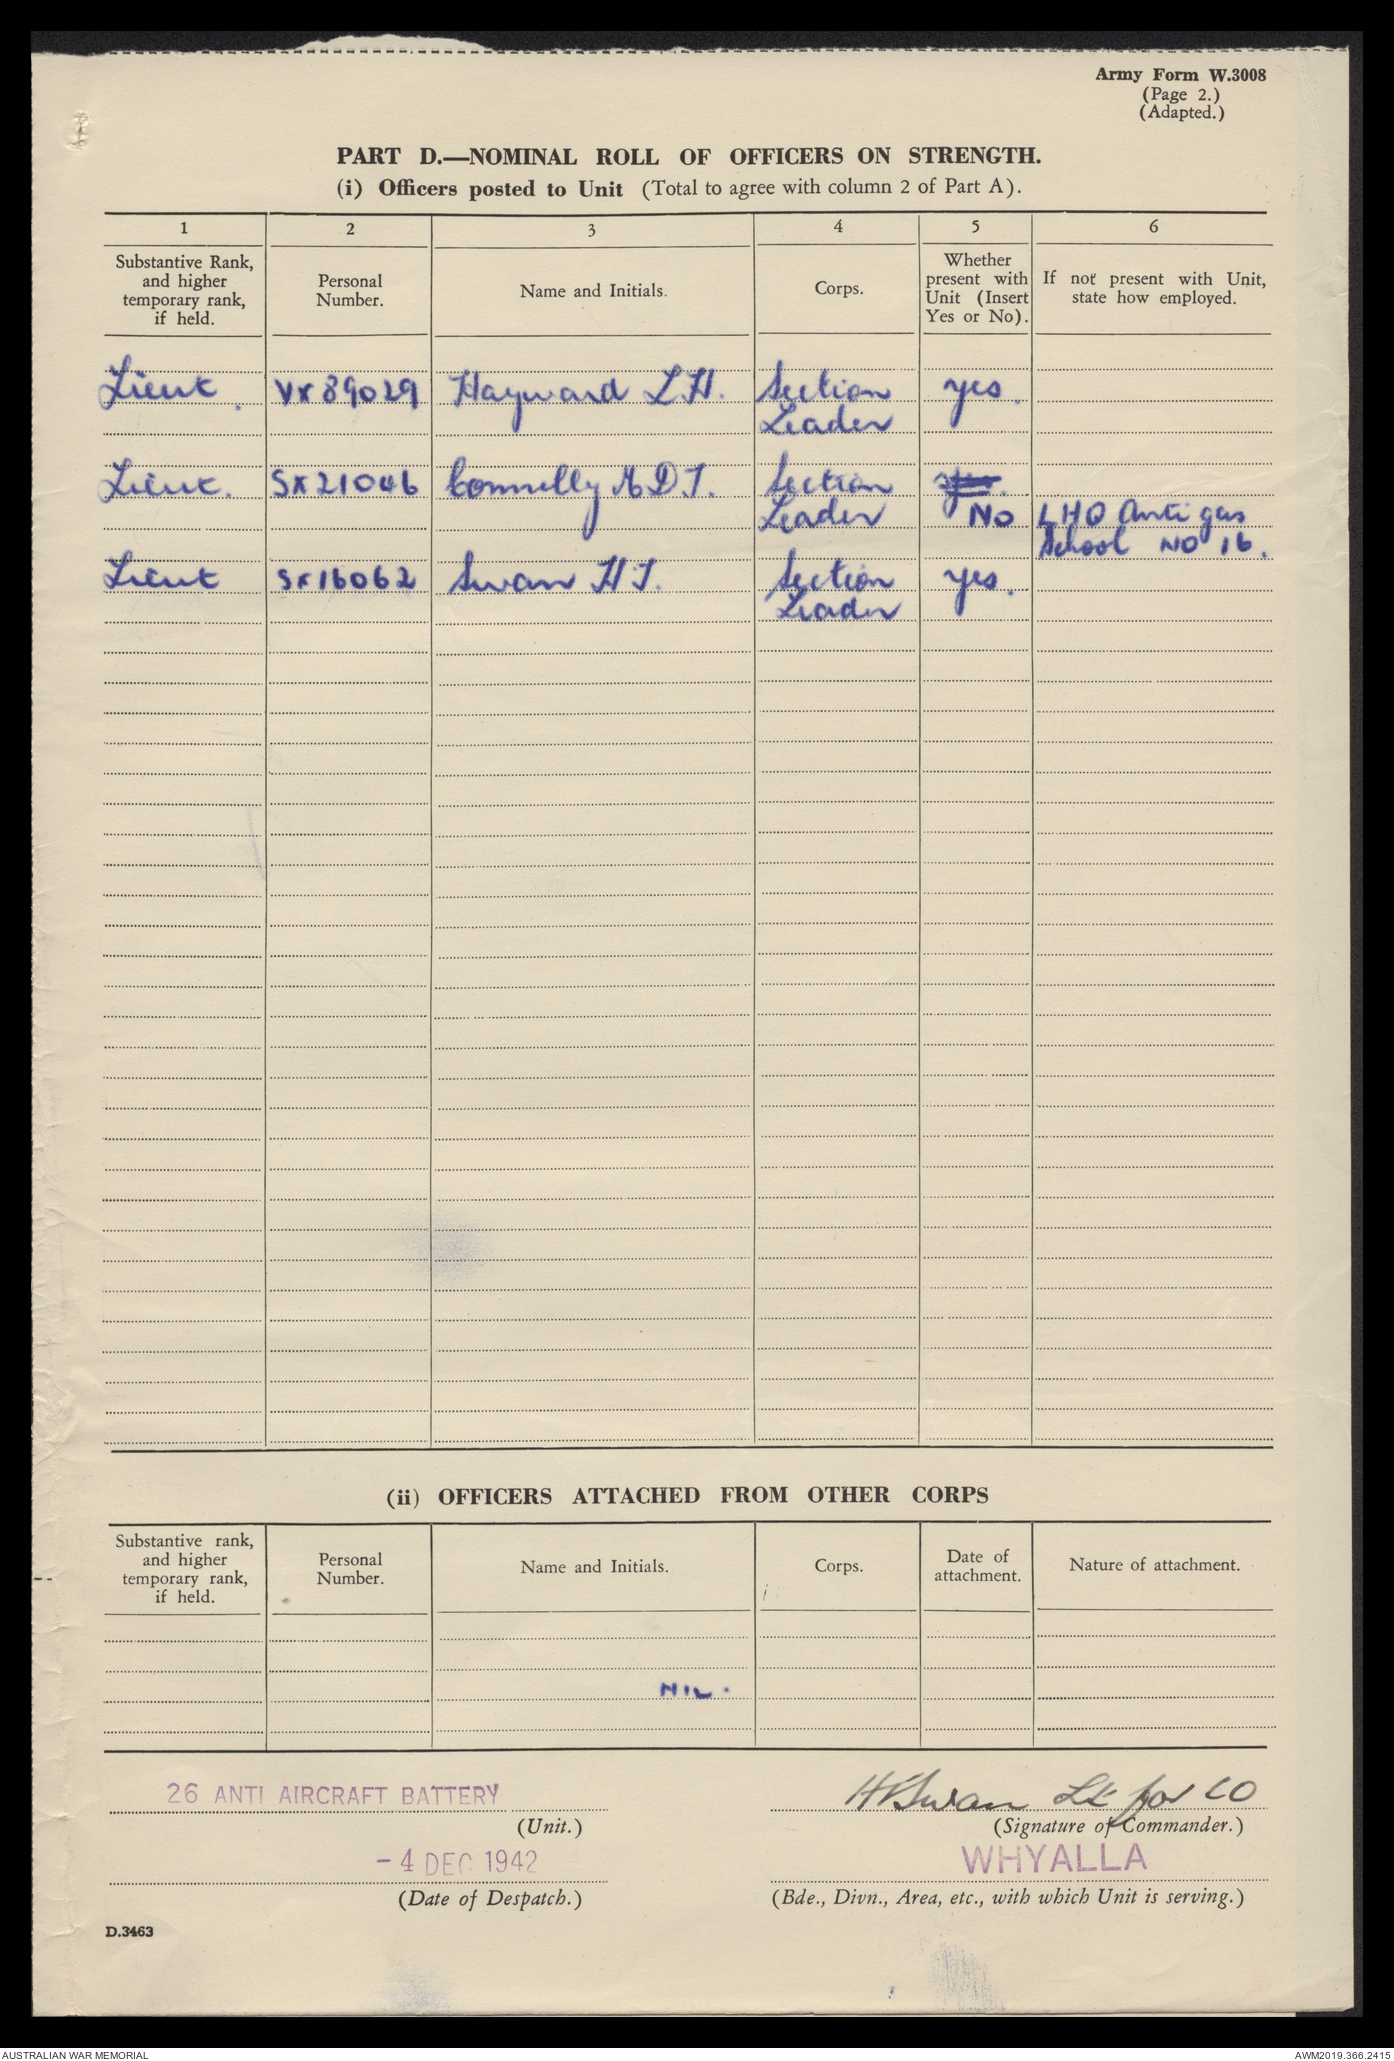 Army Form W.3008
(Page 2.)
(Adapted.)
PART D.—NOMINAL ROLL OF OFFICERS ON STRENGTH.
(i) Officers posted to Unit (Total to agree with column 2 of Part A).
1 2 3 4 5 6
Substantive Rank,
and higher
temporary rank,
if held.
Personal
Number.
Name and Initials.
Corps.
Whether
present with
Unit (Insert
Yes or No).
If not present with Unit,
state how employed.
Lieut. VX89029 Hayward L.H. Section yes.
Leader
Lieut. SX21046 Connelly A D J. Section yes.
Leader No LHQ Anti gas
School NO 16.
Lieut SX16062 Swan H J. Section yes.
Leader
(ii) OFFICERS ATTACHED FROM OTHER CORPS
Substantive rank,
and higher
temporary rank,
if held.
Personal
Number.
Name and Initials.
Corps.
Date of
attachment.
Nature of attachment.
NIL.
26 ANTI AIRCRAFT BATTERY HJSwan Lt for CO
(Unit.) (Signature of Commander.)
-4 DEC 1942 WHYALLA
(Date of Despatch.) (Bde., Divn., Area, etc., with which Unit is serving.)
D.3463
AUSTRALIAN WAR MEMORIAL AWM2019.366.2415